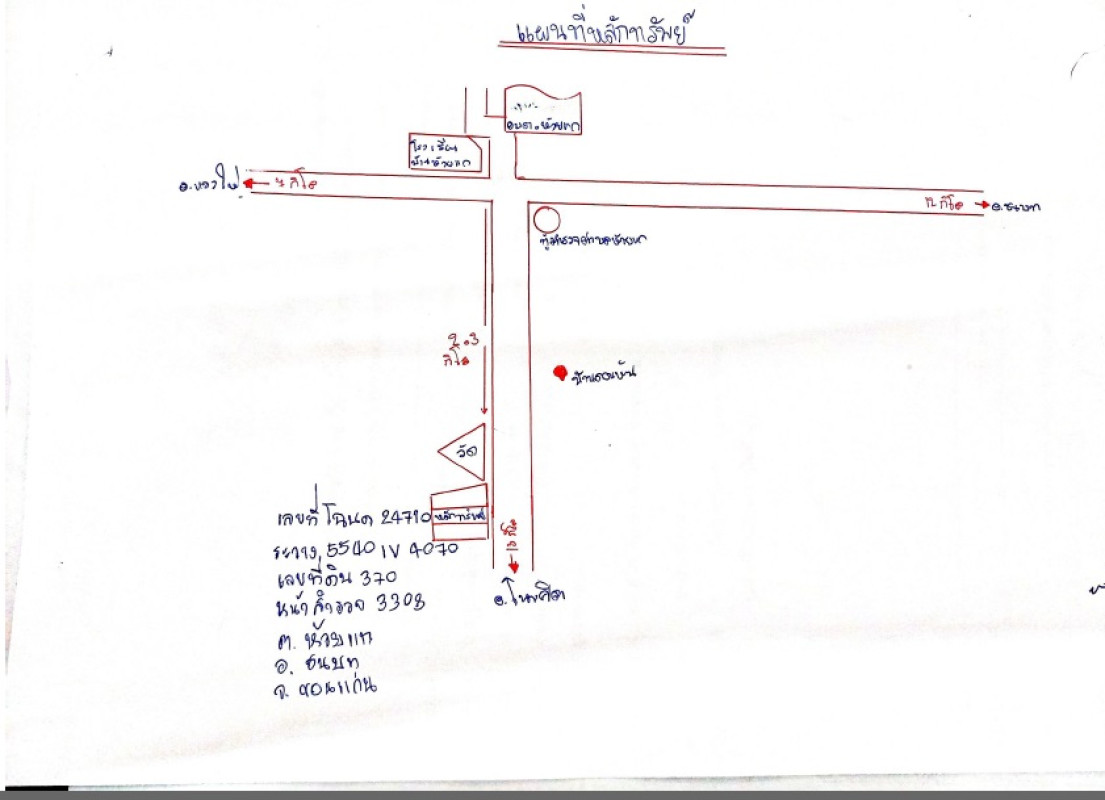 แผนที่หลักทรัพย์
อบต.ห้วยแก
โรงเรียน
บ้านห้วยแก
กิโล
12 กิโล
อ.ชนบท
ตู้ตำรวจตำบลห้วยแก
2.3
กิโล
วัด
หลักทรัพย์
เลขที่โฉนด 24710
ระวาง 5540 IV 4070
เลขที่ดิน 370
หน้าสำรวจ 3303
ต. ห้วยแก
อ. ชนบท
จ. ขอนแก่น
อ.โนนศิลา